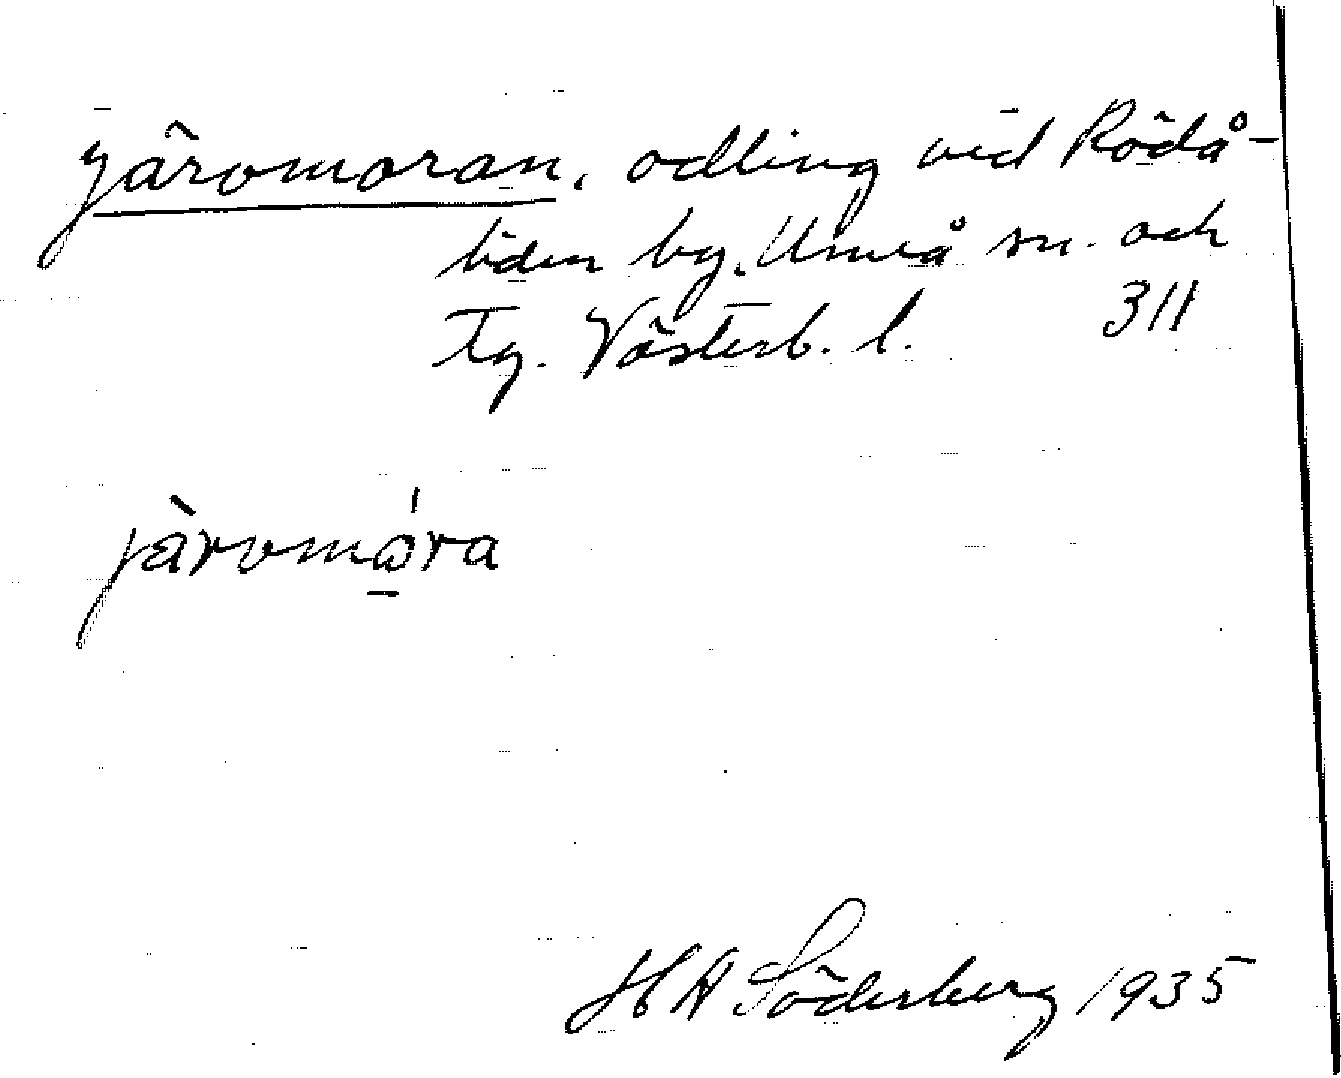 Järomoran, odling vid Rödå-
liden by, Umeå sn. och
tg. Västerb. l. 311
jàromǫ́ra
H A Söderberg 1935